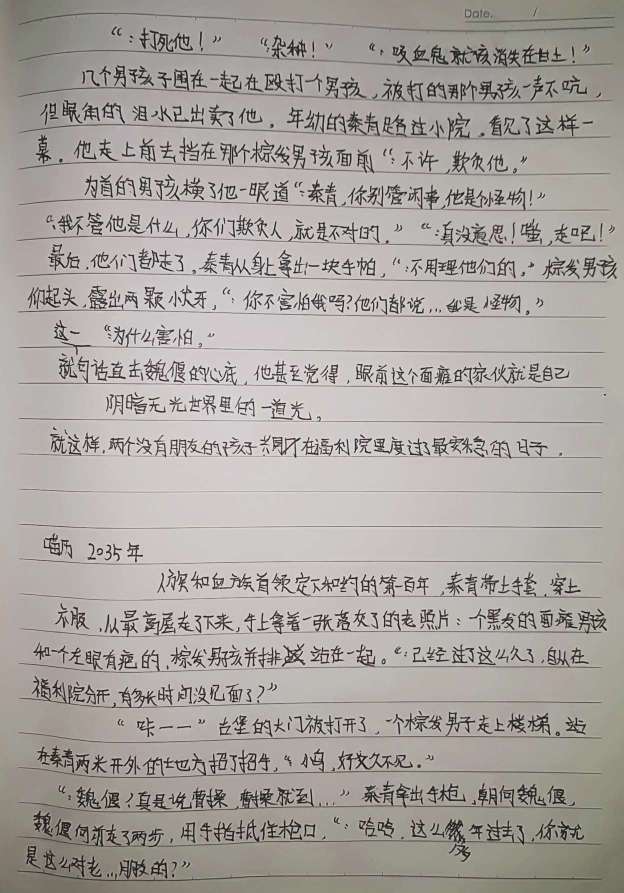 Date. /
“:打死他！” “杂种！” “:吸血鬼就该消失在日土！”
几个男孩子围在一起在殴打一个男孩，被打的那个男孩一声不吭，
但眼角的泪水已出卖了他。年幼的秦青路过小院，看见了这样一
幕。他走上前去挡在那个棕发男孩面前“:不许，欺负他。”
为首的男孩横了他一眼道“:秦青，你别管闲事，他是个怪物！”
“:我不管他是什么，你们欺负人，就是不对的。” “:真没意思！嗤，走吧！”
最后，他们都走了，秦青从身上拿出一块手帕，“:不用理他们的。”棕发男孩
仰起头，露出两颗小犬牙，“:你不害怕我吗？他们都说…我是怪物。”
“为什么害怕。”
就这一句话直击魏偃的心底，他甚至觉得，眼前这个面瘫的家伙就是自己
阴暗无光世界里的一道光。
就这样，两个没有朋友的孩子共同在福利院里度过了最安稳的日子。
2035年
人族和血族首领定下和约的第一百年，秦青带上手套，穿上
衣服，从最高层走了下来，手上拿着一张落灰了的老照片：一个黑发的面瘫男孩
和一个左眼有疤的，棕发男孩并排站在一起。“:已经过了这么久了，自从在
福利院分开，有多长时间没见面了？”
“咔——”古堡的大门被打开了，一个棕发男子走上楼梯。站
在秦青两米开外的地方招了招手，“小鸟，好久不见。”
“:魏偃？真是说曹操，曹操就到…” 秦青拿出手枪，朝向魏偃，
魏偃向前走了两步，用手指抵住枪口，“:哈哈，这么多年过去了，你就
是这么对老…朋友的？”